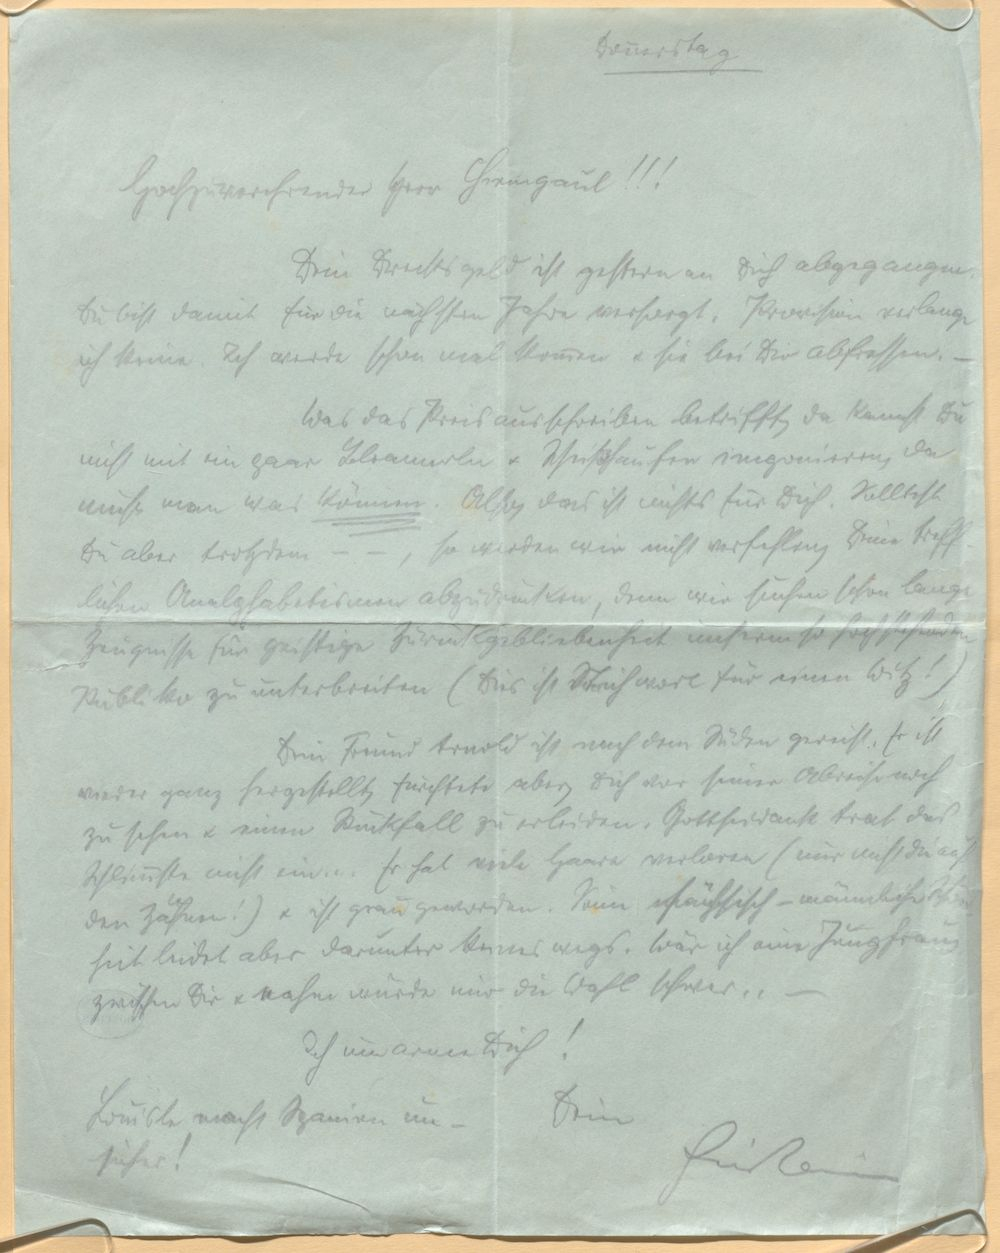 Donnerstag
Hochzuverehrender Herr Hirngaul!!!
Dein Drecksgeld ist gestern an Dich abgegangen.
Du bist damit für die nächsten Jahre versorgt. Provision verlange
ich keine. Ich werde schon mal kommen & sie bei Dir abfressen. —
Was das Preisausschreiben betrifft, da kannst Du
nicht mit ein paar & Scheißhaufen imponieren, da
muß man was können. Also, das ist nichts für Dich. Solltest
Du aber trotzdem – –, so werden wir nicht verfehlen, Deine treff-
lichen Analphabetismen abzudrucken, denn wir suchen schon lange
Zeugnisse für geistige Zurückgebliebenheit unserm so
Publiko zu unterbreiten (Dies ist Stichwort für einen Witz!)
Dein Freund Arnold ist nach dem Süden gereist. Er ist
wieder ganz hergestellt, fürchtete aber, Dich vor seiner Abreise noch
zu sehen & einen Rückfall zu erleiden. Gottseidank trat das
Schlimmste nicht ein... Er hat viele Haare verloren (nur nicht die auf
den Zähnen!) & ist grau geworden. Seine sächsisch-männliche Schön-
heit leidet aber darunter keineswegs. Wär ich eine Jungfrau,
zwischen Dir & ihm würde mir die Wahl schwer.. —
Ich umarme Dich!
Louisle macht Spanien un-
sicher!
Dein